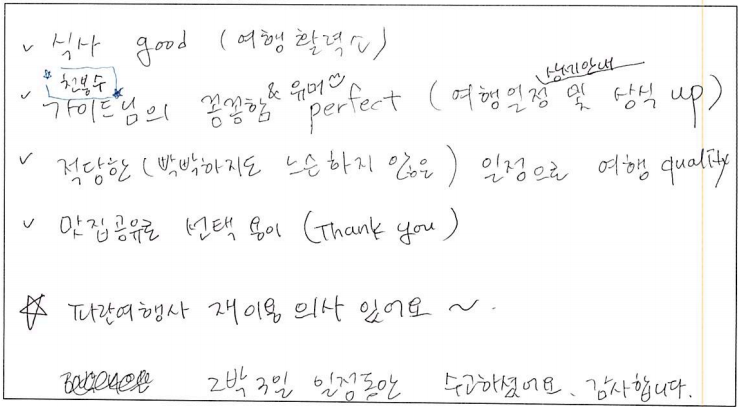 ✓ 식사 good (여행 활력소)
천봉수
✓ 가이드님의 꼼꼼함 & 유머 perfect (여행일정 상세안내 및 상식 up)
✓ 적당한 (빡빡하지도 느슨하지 않은) 일정으로 여행 quality
✓ 맛집공유로 선택 용이 (Thank you)
☆ 파란여행사 재이용 의사 있어요 ~.
2박 3일 일정동안 수고하셨어요. 감사합니다.